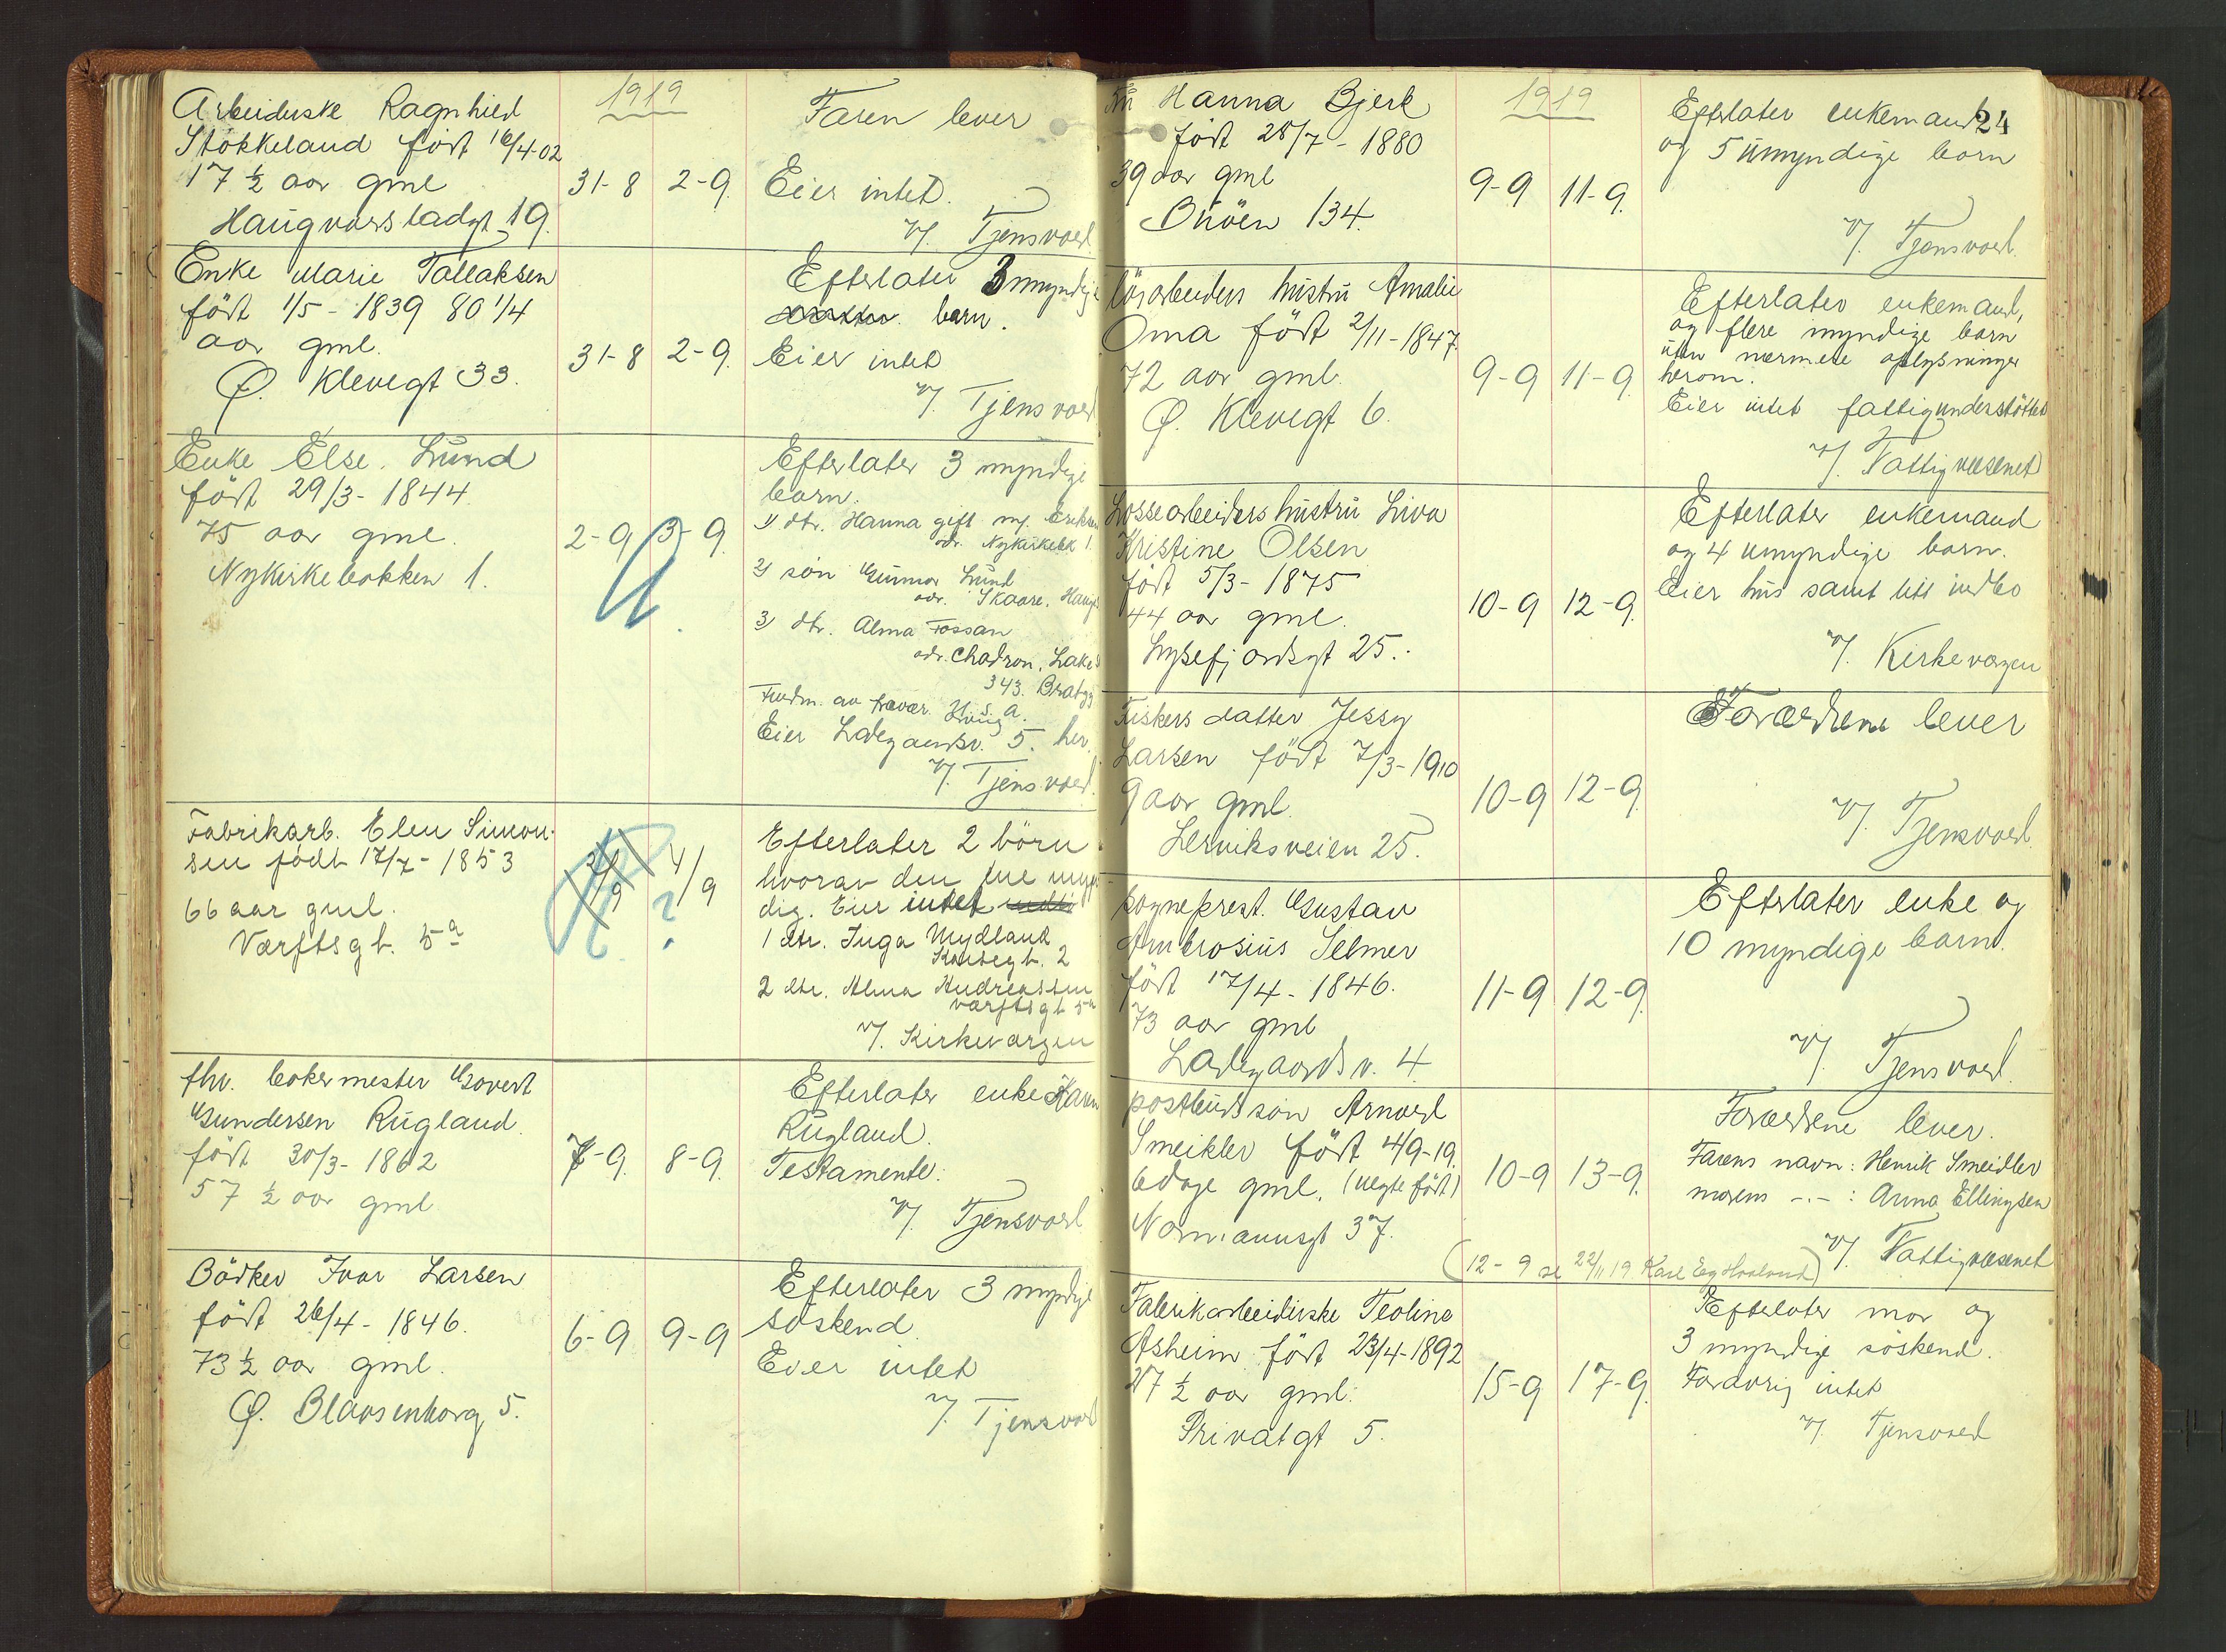 1919
Arbeiderske Ragnhild
Stokkeland født 16/4-02
17 ½ aar gml
Haugvaldstadgt 19.
31-8 2-9.
Faren lever
Eier intet.
v/. Tjensvoll
Enke Marie Tallaksen
født 1/5 - 1839 80 1/4
aar gml.
Ø. Klevegt 33.
31-8 2-9.
Efterlater 3 myndige
barn.
Eier intet
v/. Tjensvoll
Enke Else. Lund
født 29/3 - 1844.
75 aar gml.
Nykirkebakken 1.
2-9 3-9.
Efterlater 3 myndige
barn.
1) dtr. Hanna gift m/. Eriksen
adr. Nykirkebk 1.
2) søn Gunnar Lund
adr. Skaare, Haug
3) dtr. Alma Fossan
adr. Chadron, Lake
343.
U.S.A.
Eier Ladegaardsv. 5. her.
v/. Tjensvoll.
Fabrikarb. Elen Simon-
sen født 17/7 - 1853
66 aar gml.
Værftsgt. 5a
4/9
?
Efterlater 2 börn
hvorav den ene myn-
dig. Eier intet
1 dtr. Inga Mydland
2
2 dtr. Alma Andreassen
Værftsgt 5a
v/. Kirkevergen
fhv. bakermester Govert
Gundersen Rugland.
født 30/3 - 1862
57 ½ aar gml
7-9. 8-9.
Efterlater enke Karen
Rugland.
Testamente.
v/. Tjensvoll
Bödker Ivar Larsen
født 26/4 - 1846.
73 ½ aar gml.
Ø. Blaasenborg 5.
6-9 9-9
Efterlater 3 myndige
söskend.
Eier intet
v/. Tjensvoll
24
1919
Fru Hanna Bjerk
født 28/7 - 1880
39 aar gml
Buöen 134.
9-9 11-9.
Efterlater enkemand
og 5 umyndige barn
v/. Tjensvoll.
Lösarbeiders hustru Amalie
Oma født 2/11 - 1847.
72 aar gml.
Ø. Klevegt 6.
9-9 11-9.
Efterlater enkemand,
og flere myndige barn
uten nærmere oplysninger
herom.
Eier intet fattigunderstöttet
v/. Fattigvæsenet
Lossearbeiders hustru Liva
Kristine Olsen
født 5/3 - 1875
44 aar gml.
Lysefjordsgt 25.
10-9 12-9.
Efterlater enkemand
og 4 umyndige barn.
Eier hus samt litt indbo
v/. Kirkevergen
Fiskers datter Jessy
Larsen født 7/3 - 1910
9 aar gml.
Lerviksveien 25.
10-9 12-9.
Forældrene lever
v/. Tjensvoll.
Sogneprest. Gustav
Ambrosius Selmer
født 17/4 - 1846.
73 aar gml
Ladegaardsv. 4.
11-9 12-9.
Efterlater enke og
10 myndige barn.
v/. Tjensvoll.
postbuds søn Arnold
Smeikler født 4/9-19.
6 dage gml. (uegte født)
Normannsgt 37.
10-9 13-9.
Forældrene lever.
Farens navn: Henrik Smeidler
morens -.- : Anna Ellingsen
v/. Fattigvæsenet
(12-9 se 22/11 19 Karl Eg Haaland)
Fabrikarbeiderske Teoline
Asheim født 23/4-1892
27 ½ aar gml.
Privatgt 5.
15-9 17-9.
Efterlater mor og
3 myndige söskend.
Forövrig intet
v/. Tjensvoll